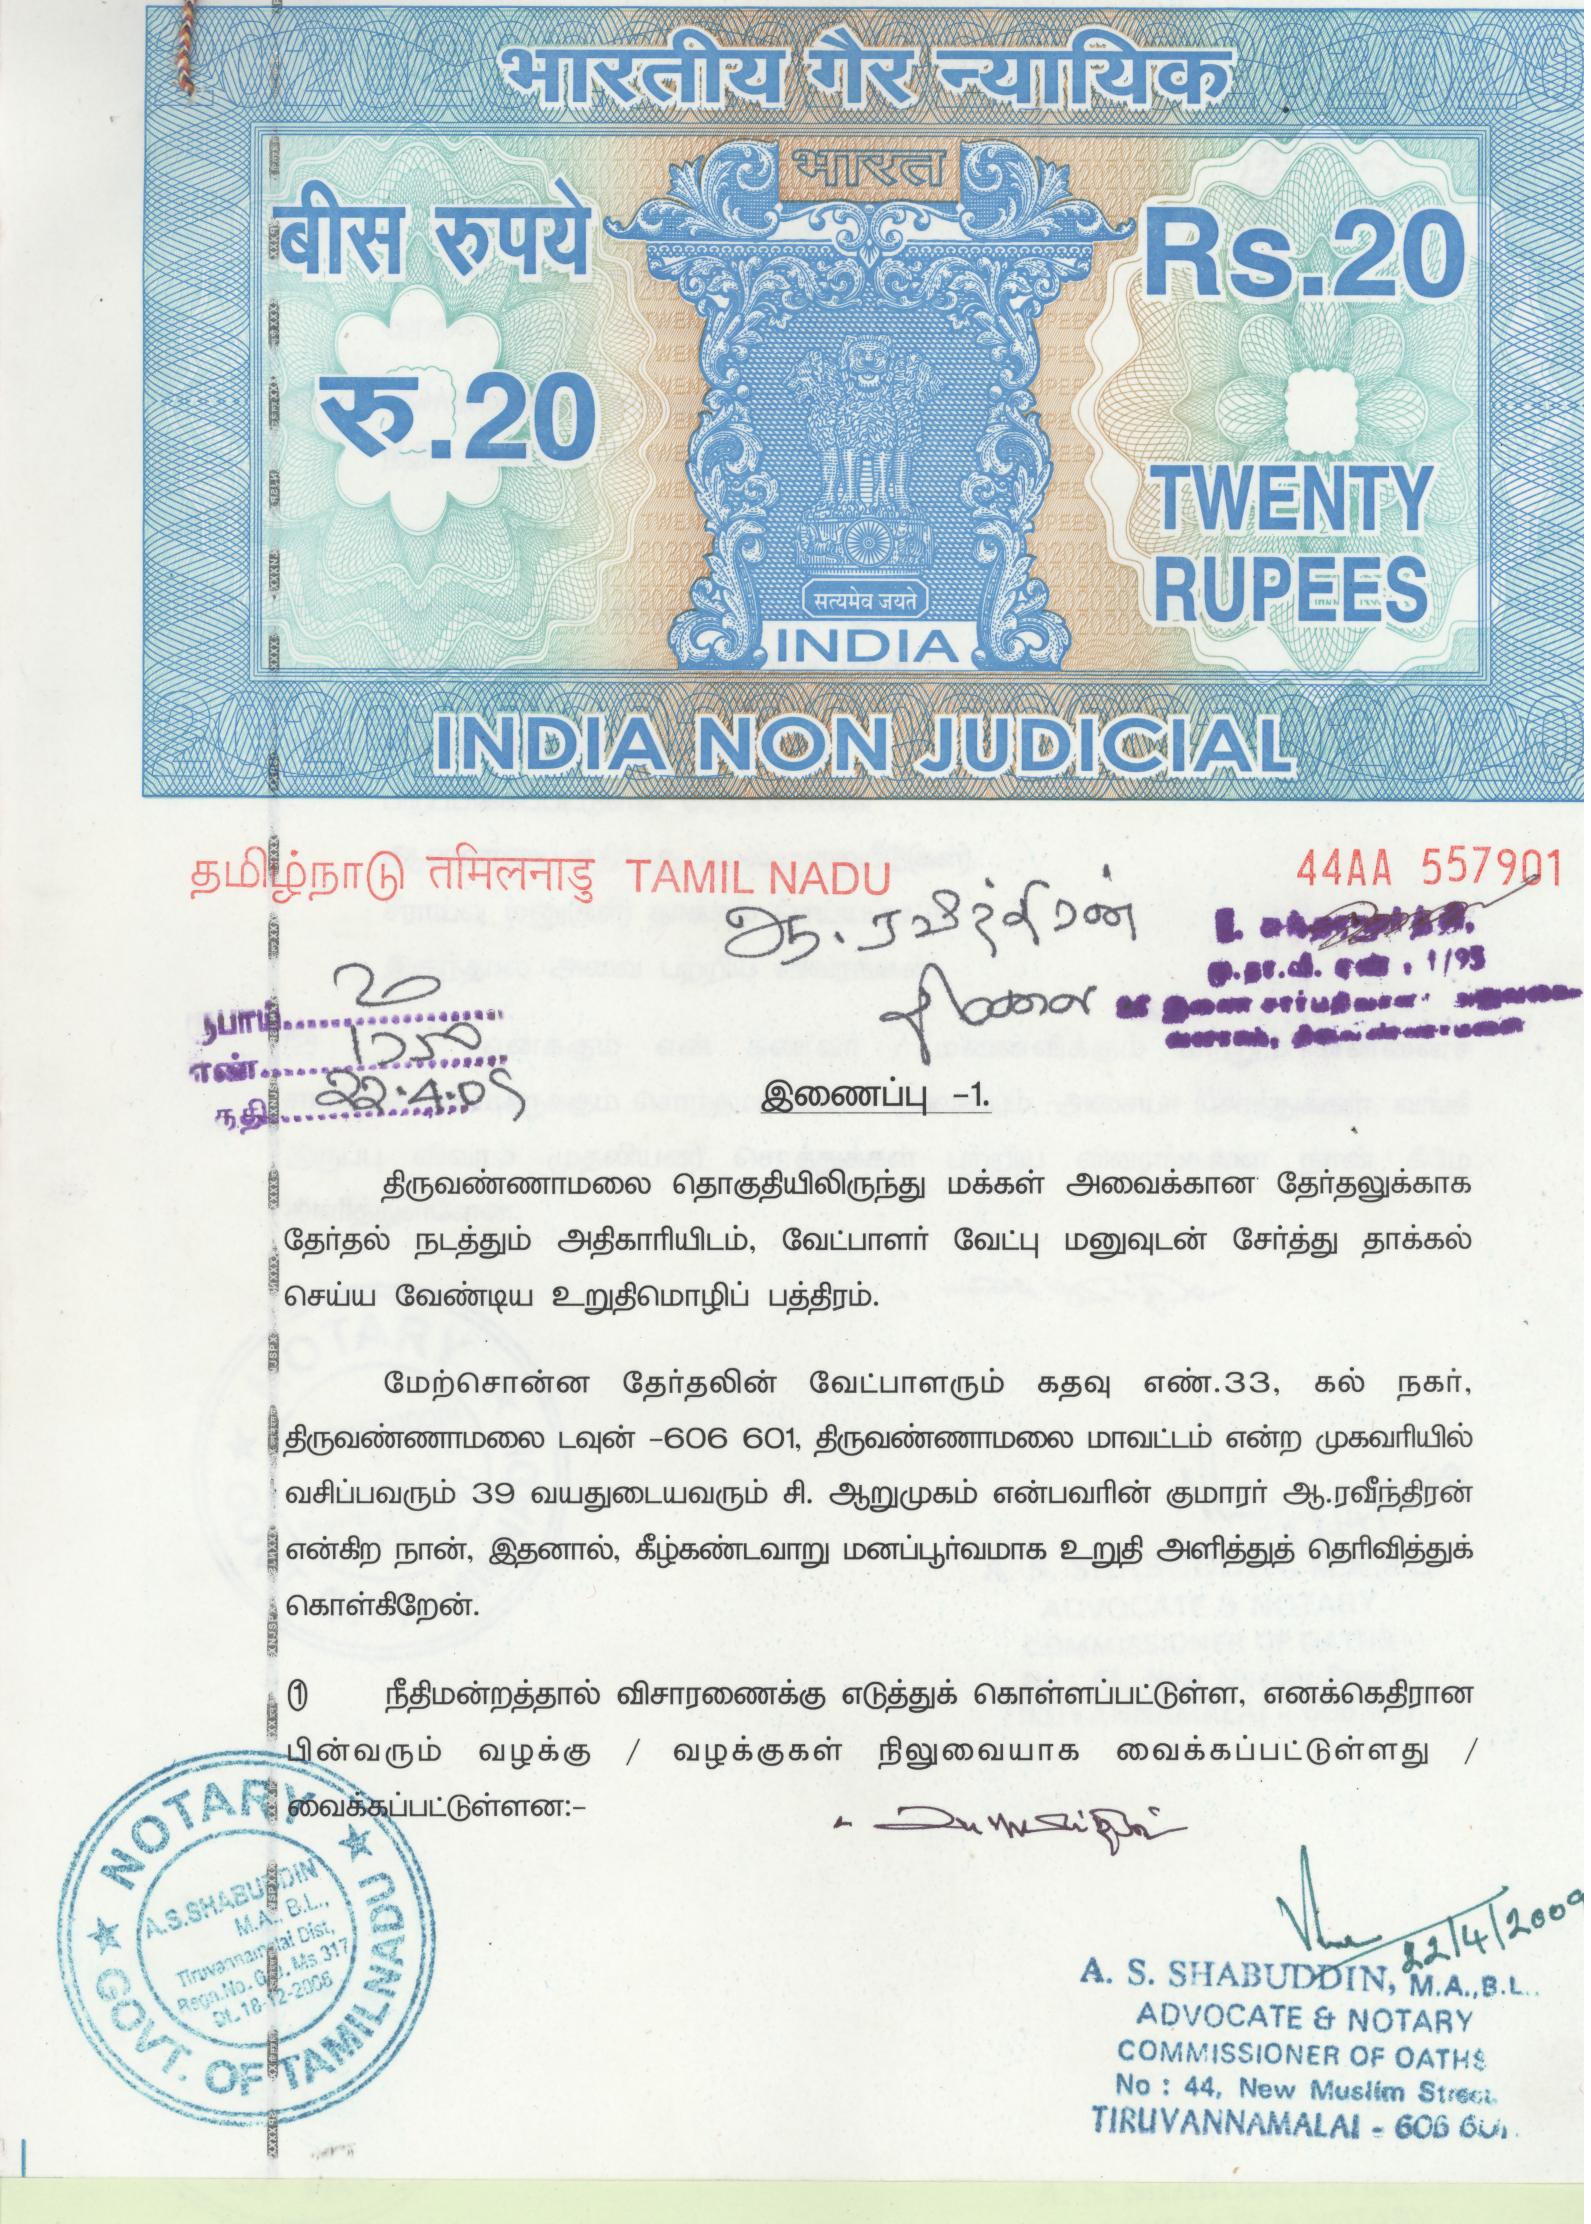 भारतीय गैर न्यायिक
भारत
बीस रुपये
Rs.20
रु.20
TWENTY
RUPEES
सत्यमेव जयते
INDIA
INDIA NON JUDICIAL
தமிழ்நாடு तमिलनाडु TAMIL NADU
44AA 557901
ஆ. ரவீந்திரன்
மு.தா.வி. எண் : 1/95
ரூபாய் 20
எண்
தேதி 22.4.09
இணைப்பு -1.
திருவண்ணாமலை தொகுதியிலிருந்து மக்கள் அவைக்கான தேர்தலுக்காக
தேர்தல் நடத்தும் அதிகாரியிடம், வேட்பாளர் வேட்பு மனுவுடன் சேர்த்து தாக்கல்
செய்ய வேண்டிய உறுதிமொழிப் பத்திரம்.
மேற்சொன்ன தேர்தலின் வேட்பாளரும் கதவு எண்.33, கல் நகர்,
திருவண்ணாமலை டவுன் -606 601, திருவண்ணாமலை மாவட்டம் என்ற முகவரியில்
வசிப்பவரும் 39 வயதுடையவரும் சி. ஆறுமுகம் என்பவரின் குமாரர் ஆ.ரவீந்திரன்
என்கிற நான், இதனால், கீழ்கண்டவாறு மனப்பூர்வமாக உறுதி அளித்துத் தெரிவித்துக்
கொள்கிறேன்.
① நீதிமன்றத்தால் விசாரணைக்கு எடுத்துக் கொள்ளப்பட்டுள்ள, எனக்கெதிரான
பின்வரும் வழக்கு / வழக்குகள் நிலுவையாக வைக்கப்பட்டுள்ளது /
வைக்கப்பட்டுள்ளன:-
NOTARY
GOVT. OF TAMILNADU
A.S.SHABUDDIN
M.A., B.L.,
Tiruvannamalai Dist,
Regn.No. G.O. Ms 317
Dt. 18-12-2006
22/4/2009
A. S. SHABUDDIN, M.A.,B.L.
ADVOCATE & NOTARY
COMMISSIONER OF OATHS
No : 44, New Muslim Street
TIRUVANNAMALAI - 606 601.